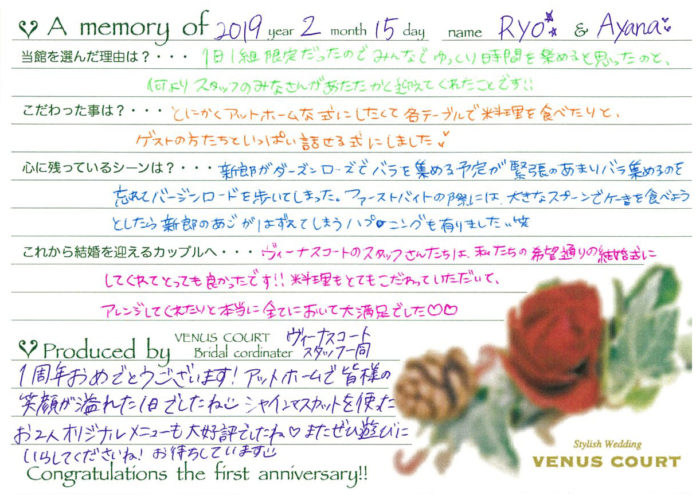 A memory of 2019 year 2 month 15 day name Ryo & Ayana
当館を選んだ理由は？・・・1日1組限定だったのでみんなでゆっくり時間を集めると思ったのと、
何よりスタッフのみなさんがあたたかく迎えてくれたことです!!
こだわった事は？・・・とにかくアットホームな式にしたくて各テーブルで料理を食べたりと、
ゲストの方たちといっぱい話せる式にしました
心に残っているシーンは？・・・新郎がダーズンローズでバラを集める予定が緊張のあまりバラ集めるのを
忘れてバージンロードを歩いてしまった。ファーストバイトの際には、大きなスプーンでケーキを食べよう
としたら新郎のあごがはずれてしまうハプニングも有りました笑
これから結婚を迎えるカップルへ・・・ヴィーナスコートのスタッフさんたちは、私たちの希望通りの結婚式に
してくれてとっても良かったです!!料理もとてもこだわっていただいて、
アレンジしてくれたりと本当に全てにおいて大満足でした♡♡
Produced by VENUS COURT Bridal cordinater ヴィーナスコート スタッフ一同
1周年おめでとうございます!アットホームで皆様の
笑顔が溢れた1日でしたね シャインマスカットを使った
お2人オリジナルメニューも大好評でしたね♡またぜひ遊びに
いらしてくださいね!お待ちしています
Congratulations the first anniversary!!
Stylish Wedding
VENUS COURT